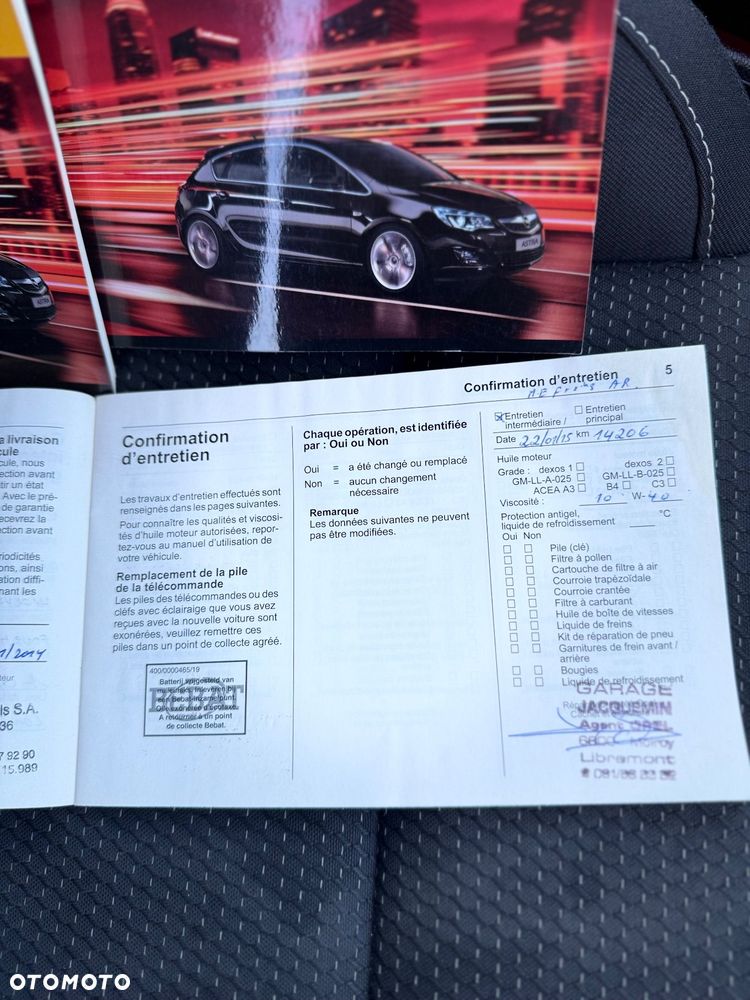 ASTRA
Confirmation d'entretien 5
a livraison
cule
cule, nous
ection avant
tir un état
Avec le pré-
de garantie
ecevrez la
ection avant
riodicités
ons, ainsi
ation diffi-
nant les
1/2014
teur
ls S.A.
36
7 92 90
15.989
Confirmation
d'entretien
Les travaux d'entretien effectués sont
renseignés dans les pages suivantes.
Pour connaître les qualités et viscosi-
tés d'huile moteur autorisées, repor-
tez-vous au manuel d'utilisation de
votre véhicule.
Remplacement de la pile
de la télécommande
Les piles des télécommandes ou des
cléfs avec éclairaige que vous avez
reçues avec la nouvelle voiture sont
exonérées, veuillez remettre ces
piles dans un point de collecte agréé.
400/0000465/19
BEBAT
Batterij vrijgesteld van
Bebat-inzamelpunt.
Pile exonérée d'écotaxe.
A retourner à un point
de collecte Bebat.
Chaque opération, est identifiée
par : Oui ou Non
Oui = a été changé ou remplacé
Non = aucun changement
nécessaire
Remarque
Les données suivantes ne peuvent
pas être modifiées.
AR.
Entretien
intermédiaire /
Entretien
principal
Date 22/01/15 km 14206
Huile moteur
Grade : dexos 1 dexos 2
GM-LL-A-025 GM-LL-B-025
ACEA A3 B4 C3
Viscosité : 10 W- 40
Protection antigel,
liquide de refroidissement °C
Oui Non
Pile (clé)
Filtre à pollen
Cartouche de filtre à air
Courroie trapézoïdale
Courroie crantée
Filtre à carburant
Huile de boîte de vitesses
Liquide de freins
Kit de réparation de pneu
Garnitures de frein avant /
arrière
Bougies
Liquide de refroidissement
GARAGE
JACQUEMIN
Agent OPEL
Libramont
OTOMOTO